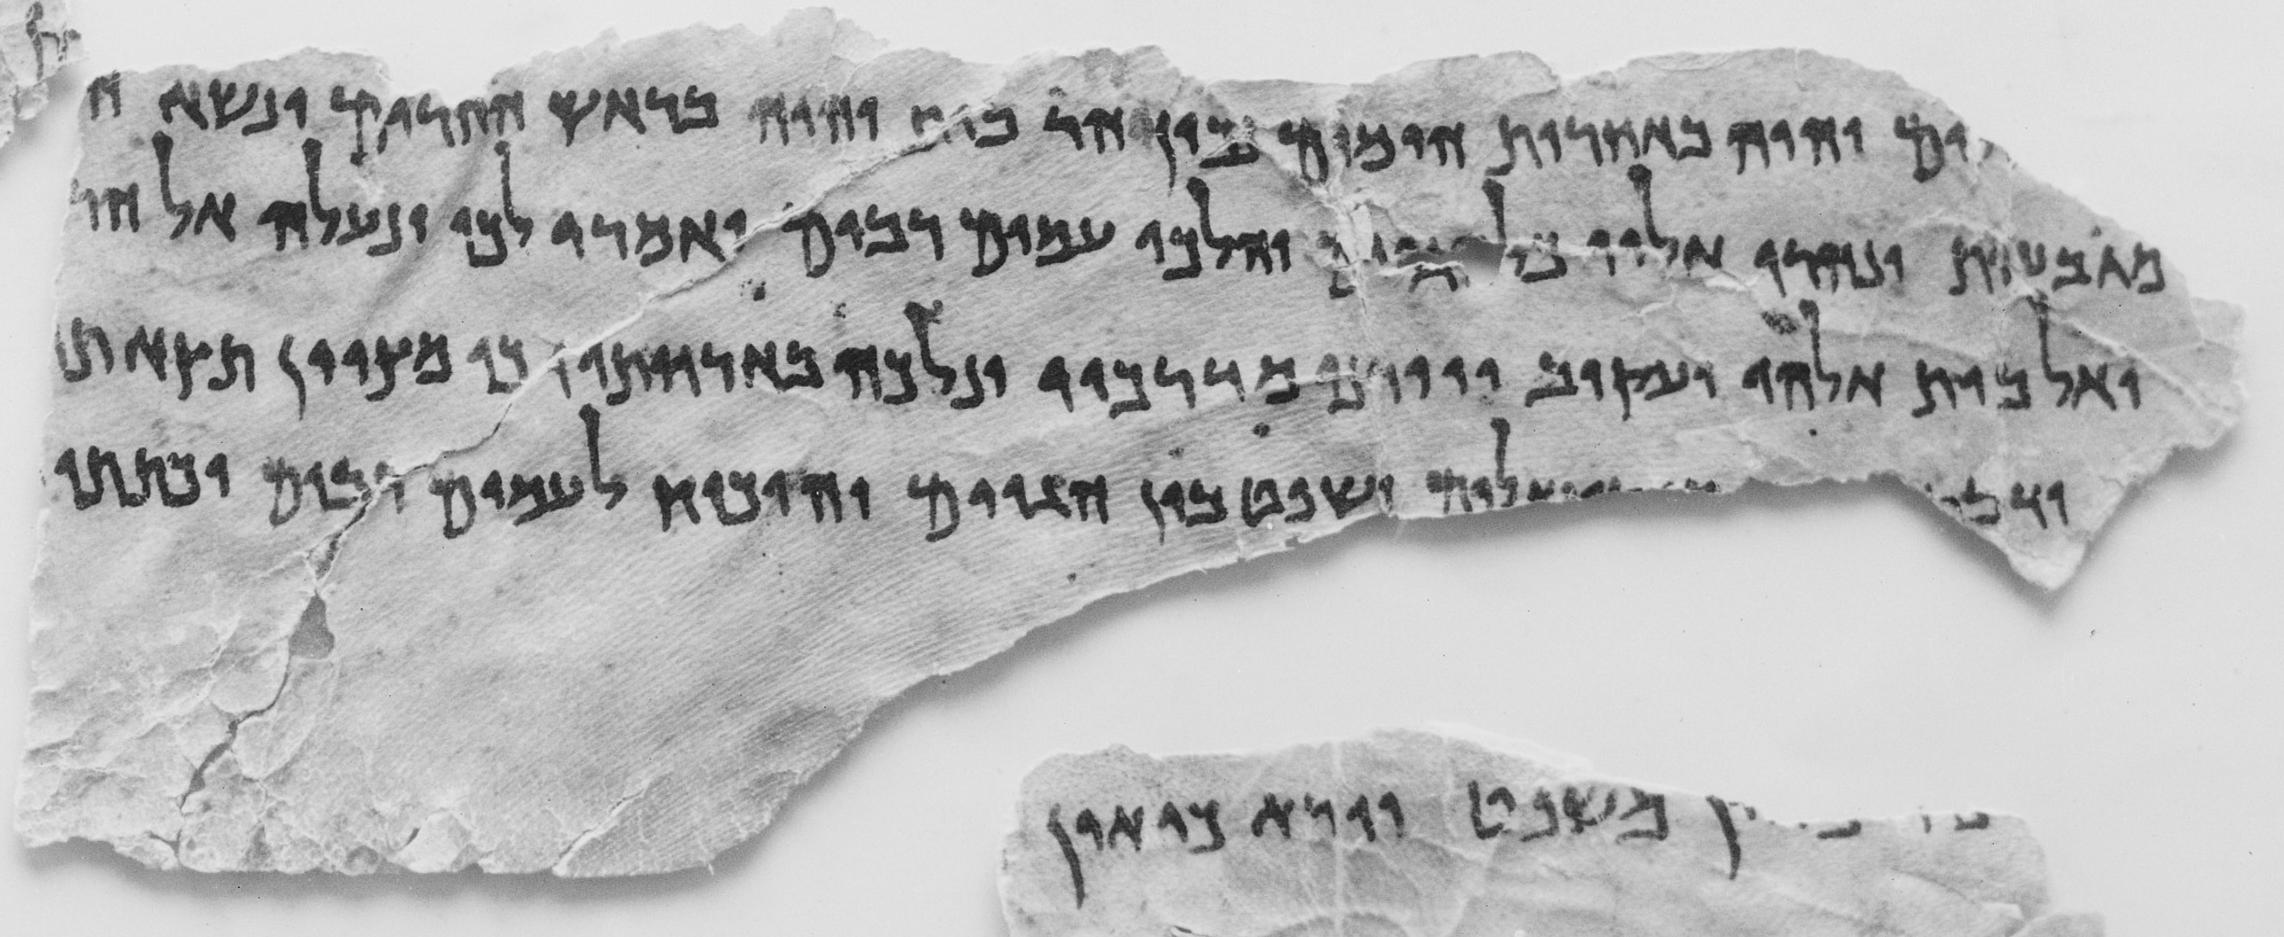 ים והיה באחרית הימים נכון הר בית יהוה בראש ההרים ונשא ה
מגבעות ונהרו אליו כל הגוים והלכו עמים רבים ואמרו לכו ונעלה אל הר
ואל בית אלהי יעקוב ויורנו מדרכיו ונלכה בארחתיו כי מציון תצא תו
ודבר ושפט בין הגוים והוכיח לעמים רבים וכתתו
משפט וירא כי אין